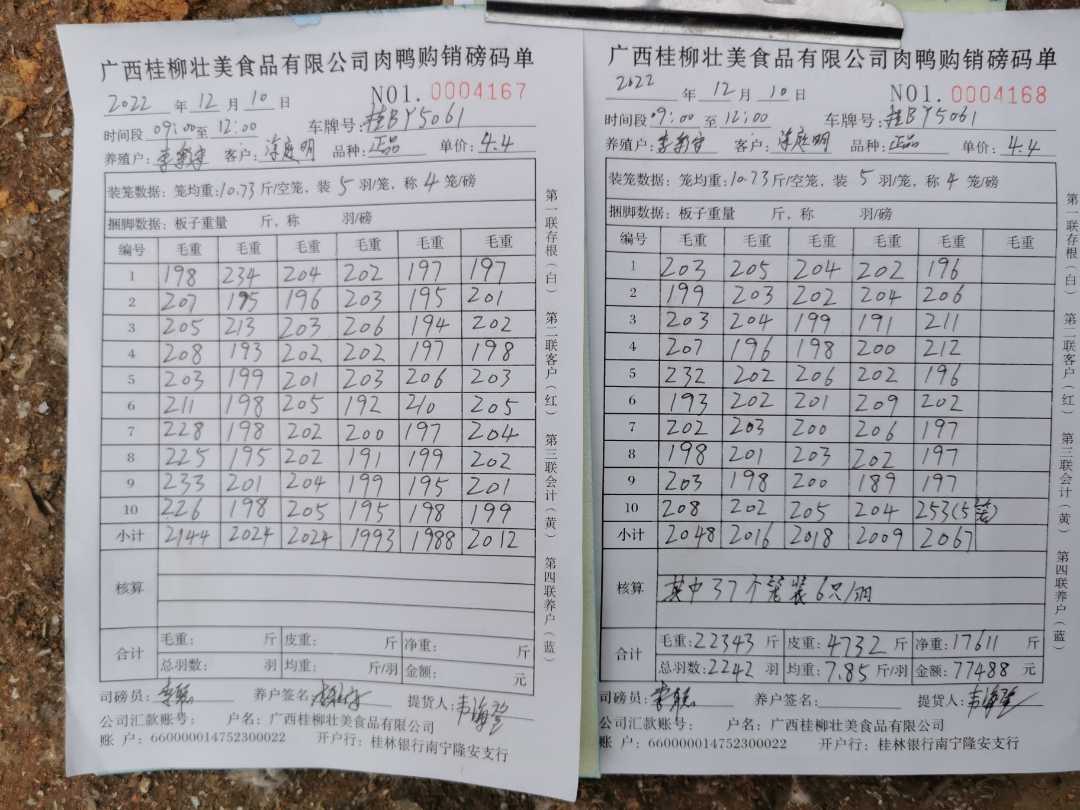 广西桂柳壮美食品有限公司肉鸭购销磅码单
2022 年 12 月 10 日 NO1. 0004167
时间段 09:00 至 12:00 车牌号: 桂BY5061
养殖户: 客户: 品种: 正品 单价: 4.4
装笼数据: 笼均重: 10.73 斤/空笼, 装 5 羽/笼, 称 4 笼/磅
捆脚数据: 板子重量 斤, 称 羽/磅
编号 毛重 毛重 毛重 毛重 毛重 毛重
1 198 234 204 202 197 197
2 207 195 196 203 195 201
3 205 213 203 206 194 202
4 208 193 202 202 197 198
5 203 199 201 203 206 203
6 211 198 205 192 210 205
7 228 198 202 200 197 204
8 225 195 202 191 199 202
9 233 201 204 199 195 201
10 226 198 205 195 198 199
小计 2144 2024 2024 1993 1988 2012
核算
合计 毛重: 斤 皮重: 斤 净重: 斤
总羽数: 羽 均重: 斤/羽 金额: 元
司磅员: 养户签名: 提货人:
公司汇款账号: 户名: 广西桂柳壮美食品有限公司
账 户: 660000014752300022 开户行: 桂林银行南宁隆安支行
第一联存根(白) 第二联客户(红) 第三联会计(黄) 第四联养户(蓝)
广西桂柳壮美食品有限公司肉鸭购销磅码单
2022 年 12 月 10 日 NO1. 0004168
时间段 09:00 至 12:00 车牌号: 桂BY5061
养殖户: 客户: 品种: 正品 单价: 4.4
装笼数据: 笼均重: 10.73 斤/空笼, 装 5 羽/笼, 称 4 笼/磅
捆脚数据: 板子重量 斤, 称 羽/磅
编号 毛重 毛重 毛重 毛重 毛重 毛重
1 203 205 204 202 196
2 199 203 202 204 206
3 203 204 199 191 211
4 207 196 198 200 212
5 232 202 206 202 196
6 193 202 201 209 202
7 202 203 200 206 197
8 198 201 203 202 197
9 203 198 200 189 197
10 208 202 205 204 253(5笼)
小计 2048 2016 2018 2009 2067
核算 其中37个笼装6只/羽
合计 毛重: 22343 斤 皮重: 4732 斤 净重: 17611 斤
总羽数: 2242 羽 均重: 7.85 斤/羽 金额: 77488 元
司磅员: 养户签名: 提货人:
公司汇款账号: 户名: 广西桂柳壮美食品有限公司
账 户: 660000014752300022 开户行: 桂林银行南宁隆安支行
第一联存根(白) 第二联客户(红) 第三联会计(黄) 第四联养户(蓝)